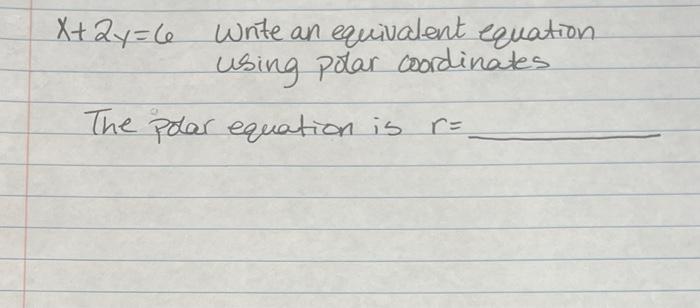 x+2y=6 Write an equivalent equation
using polar coordinates
The polar equation is r=